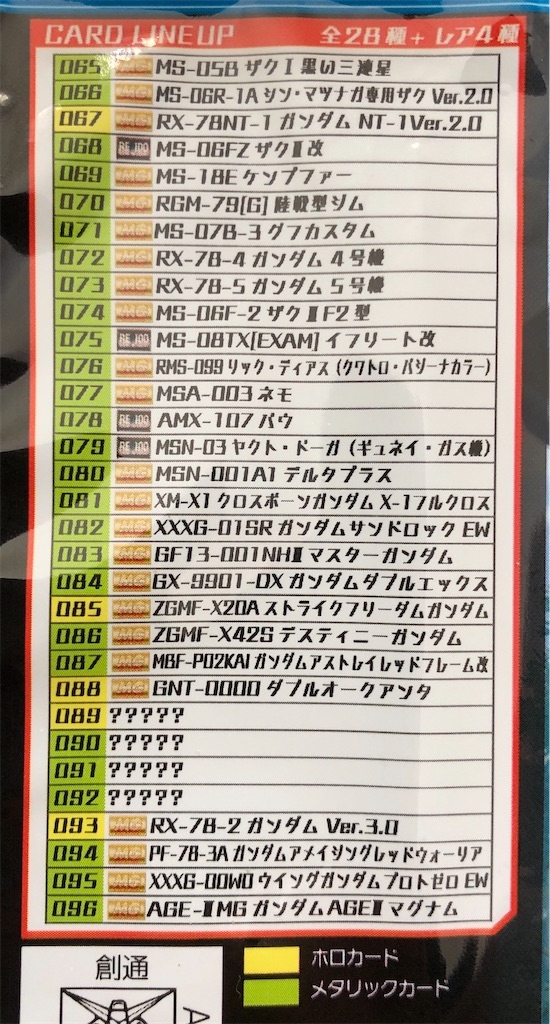 CARD LINEUP 全28種+レア4種
065 MG MS-05B ザクⅠ 黒い三連星
066 MG MS-06R-1A シン・マツナガ専用ザク Ver.2.0
067 MG RX-78NT-1 ガンダム NT-1Ver.2.0
068 RE/100 MS-06FZ ザクⅡ改
069 MG MS-18E ケンプファー
070 MG RGM-79[G] 陸戦型ジム
071 MG MS-07B-3 グフカスタム
072 MG RX-78-4 ガンダム 4号機
073 MG RX-78-5 ガンダム 5号機
074 MG MS-06F-2 ザクⅡF2型
075 RE/100 MS-08TX[EXAM] イフリート改
076 MG RMS-099 リック・ディアス (クワトロ・バジーナカラー)
077 MG MSA-003 ネモ
078 RE/100 AMX-107 バウ
079 RE/100 MSN-03 ヤクト・ドーガ (ギュネイ・ガス機)
080 MG MSN-001A1 デルタプラス
081 MG XM-X1 クロスボーンガンダム X-1フルクロス
082 MG XXXG-01SR ガンダムサンドロック EW
083 MG GF13-001NHⅡ マスターガンダム
084 MG GX-9901-DX ガンダムダブルエックス
085 MG ZGMF-X20A ストライクフリーダムガンダム
086 MG ZGMF-X42S デスティニーガンダム
087 MG MBF-P02KAI ガンダムアストレイレッドフレーム改
088 MG GNT-0000 ダブルオークアンタ
089 ?????
090 ?????
091 ?????
092 ?????
093 MG RX-78-2 ガンダム Ver.3.0
094 MG PF-78-3A ガンダムアメイジングレッドウォーリア
095 MG XXXG-00W0 ウイングガンダムプロトゼロ EW
096 MG AGE-ⅡMG ガンダムAGEⅡ マグナム
ホロカード
メタリックカード
創通